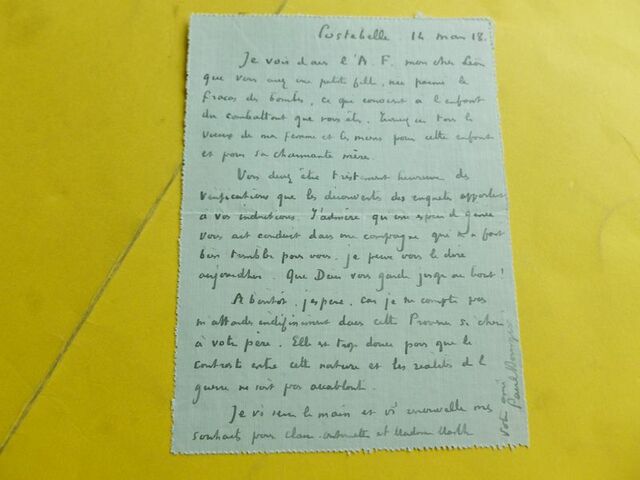 Costebelle. 14 mars 18.
Je vois dans l'A. F. mon cher Léon
que vous avez une petite fille, née parmi le
fracas des bombes, ce que convient à l'enfant
du combattant que vous êtes. tous les
vœux de ma femme et les miens pour cette enfant
et pour sa charmante mère.
Vous devez être tristement heureux des
vérifications que les découvertes des enquêtes apportent
à vos inductions. J'admire qu'une espèce de génie
vous ait conduit dans une campagne qui m'a fait
bien trembler pour vous. je peux vous le dire
aujourd'hui. Que Dieu vous garde jusqu'au bout!
A bientôt, j'espère, car je ne compte pas
m'attarder indéfiniment dans cette Provence si chère
à votre père. Elle est trop douce pour que le
contraste entre cette nature et les réalités de la
guerre ne soit pas accablant.
Je vs serre la main et vs renouvelle mes
souhaits pour Claire-Antoinette et Madame Marthe
Votre ami
Paul Bourget